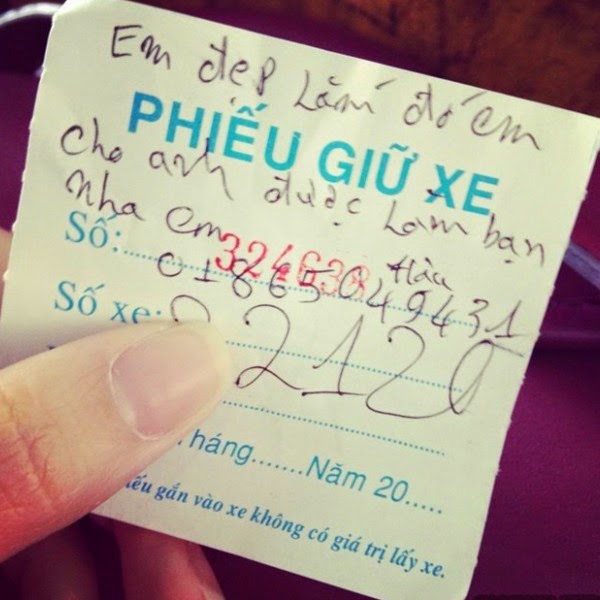 Em đẹp Lắm đó em
PHIẾU GIỮ XE
cho anh được Làm bạn
nha em Hậu
Số: 324638
01865049431
Số xe: 2120
háng.......Năm 20.....
iếu gắn vào xe không có giá trị lấy xe.